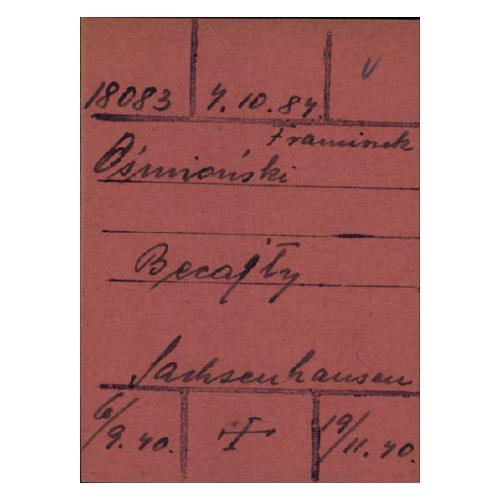 18083 4.10.84. v
Franciszek
Ośmioński
Becajły
Sachsenhausen
6/9.40. 19/11.40.